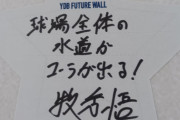 YDB FUTURE WALL
球場全体の
水道が
コーラが出る！
牧秀悟